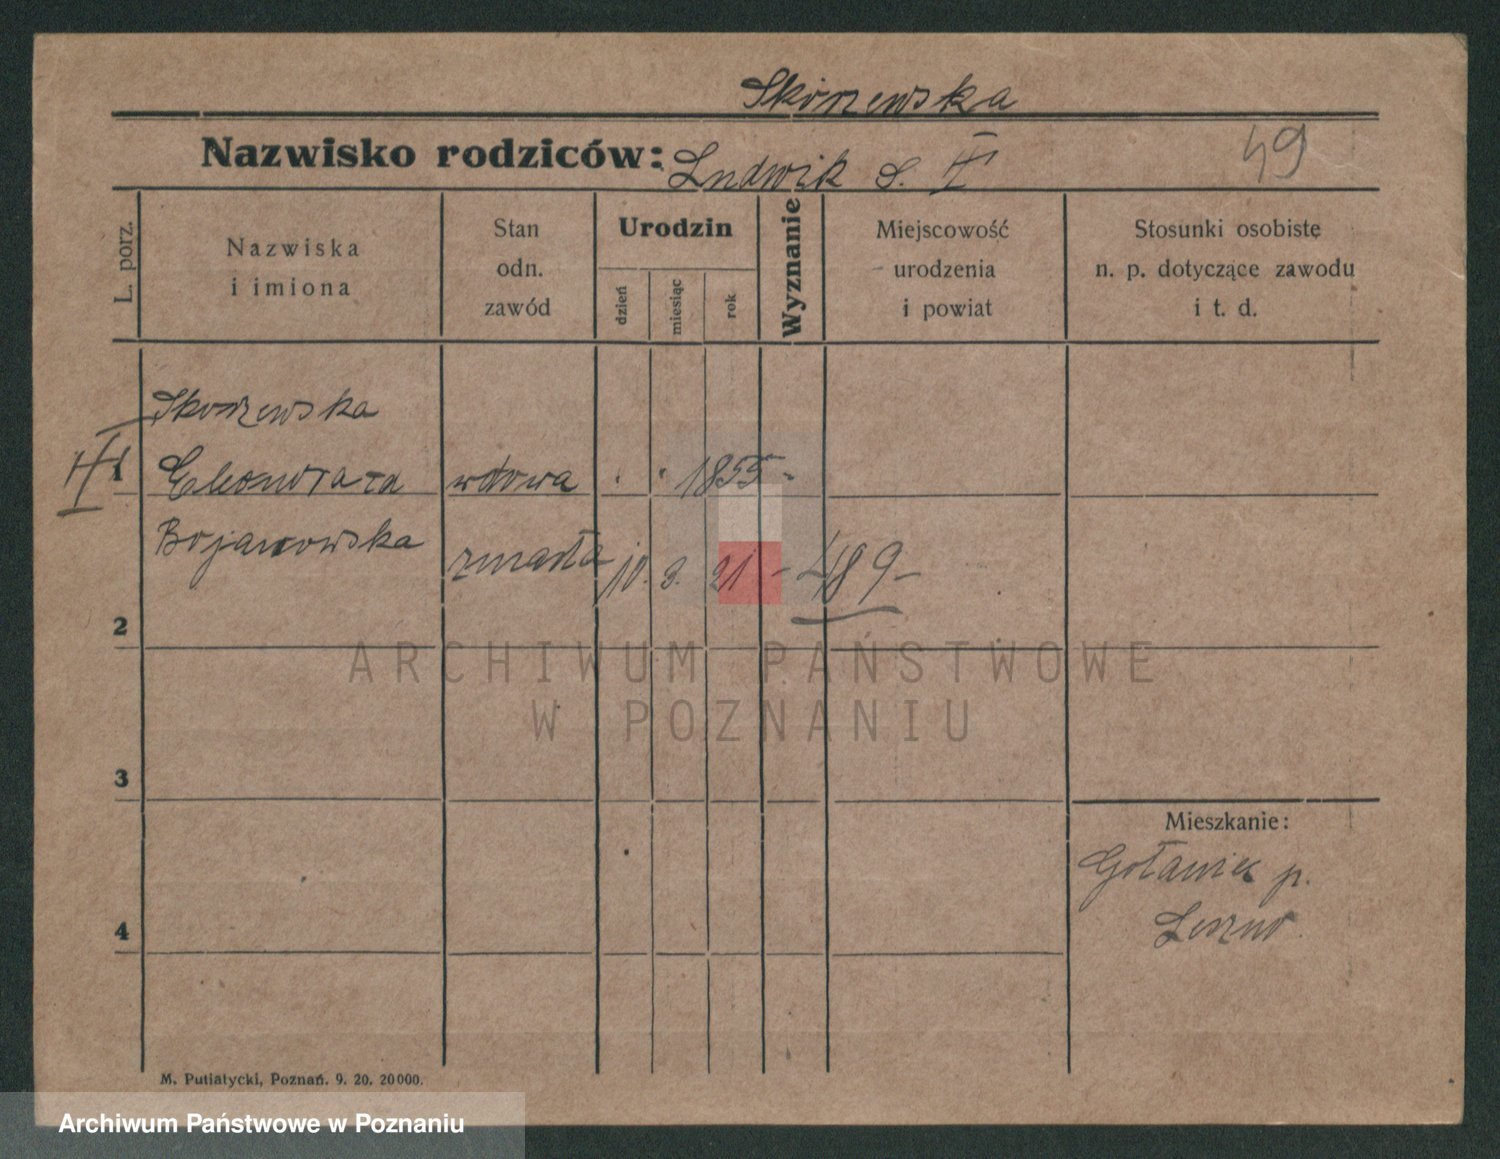 Skórzewska
Nazwisko rodziców: Ludwik S. II
49
L. porz.
Nazwiska
i imiona
Stan
odn.
zawód
Urodzin
dzień
miesiąc
rok
Wyznanie
Miejscowość
urodzenia
i powiat
Stosunki osobiste
n. p. dotyczące zawodu
i t. d.
Skorzewska
1 wdowa 1855
Bojanowska
zmarła 10. 9. 21 - 489 -
2
ARCHIWUM PAŃSTWOWE
W POZNANIU
3
Mieszkanie:
4
M. Putiatycki, Poznań. 9. 20. 20000.
Archiwum Państwowe w Poznaniu